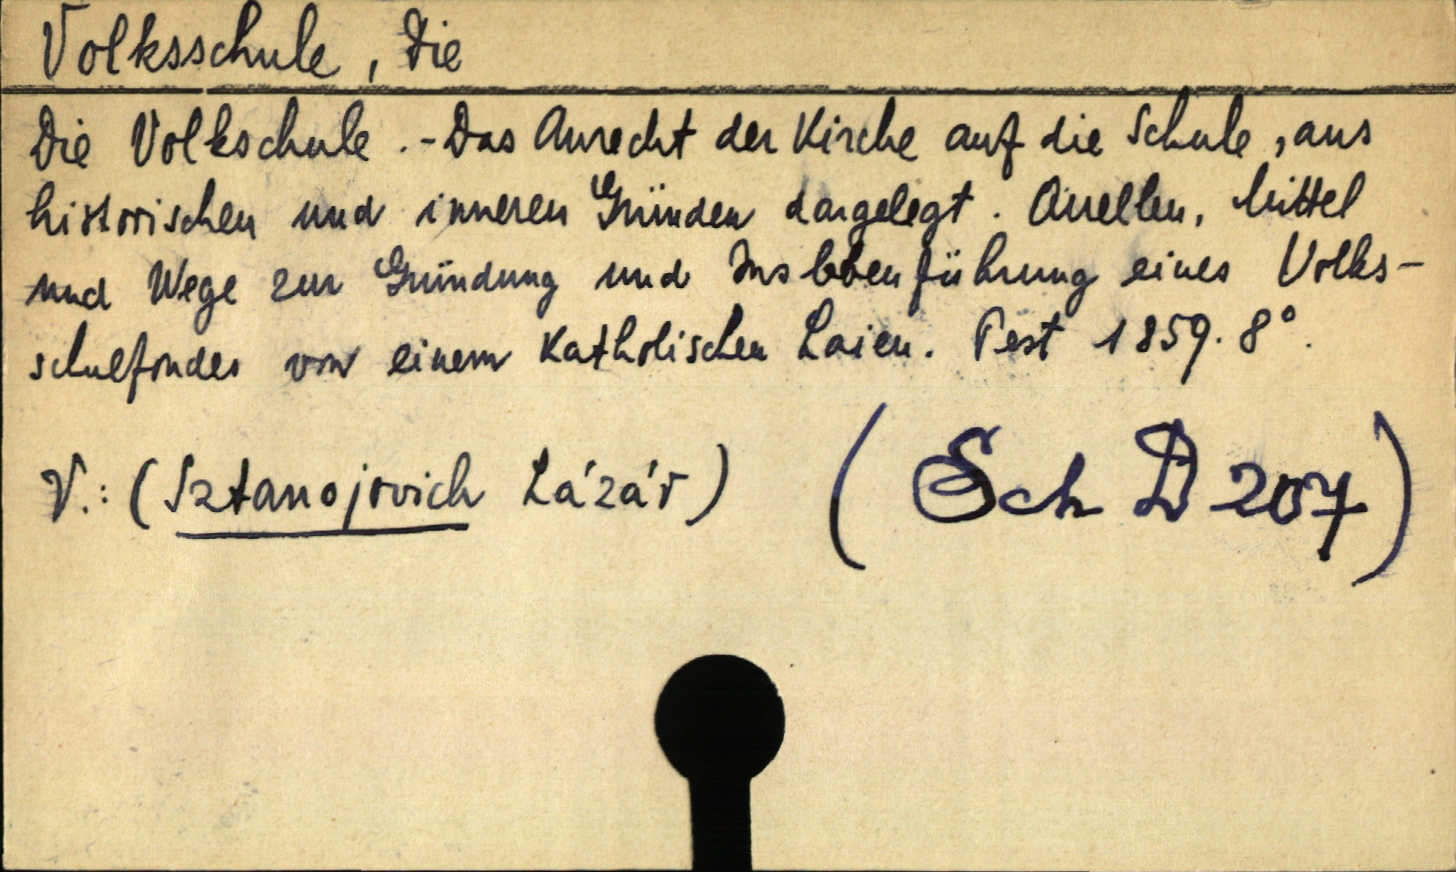 Volksschule, Die
Die Volkschule .- Das Anrecht der Kirche auf die Schule, aus
historischen und inneren Gründen dargelegt. Quellen, Mittel
und Wege zur Gründung und Inslebenführung eines Volks-
schulfondes von einem Katholischen Laien. Pest 1859. 8°.
V.: (Sztanojovich Lázár) (Sch D 207)